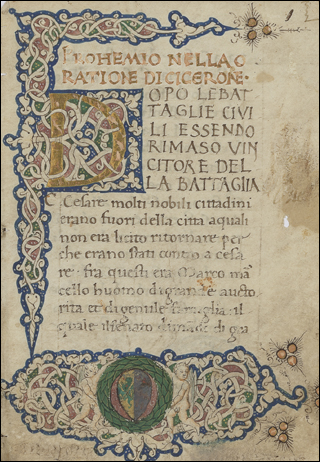 PROHEMIO NELLA O
RATIONE DI CICERONE·
DOPO LE BAT
TAGLIE CIVI
LI ESSENDO
RIMASO VIN
CITORE DEL
LA BATTAGLIA
Cesare molti nobili cittadini
erano fuori della citta aquali
non era licito ritornare per
che erano stati contro a cesa
re· fra questi era Marco mar
cello huomo di grande aucto
rita et di gentile famiglia il
quale il senato di